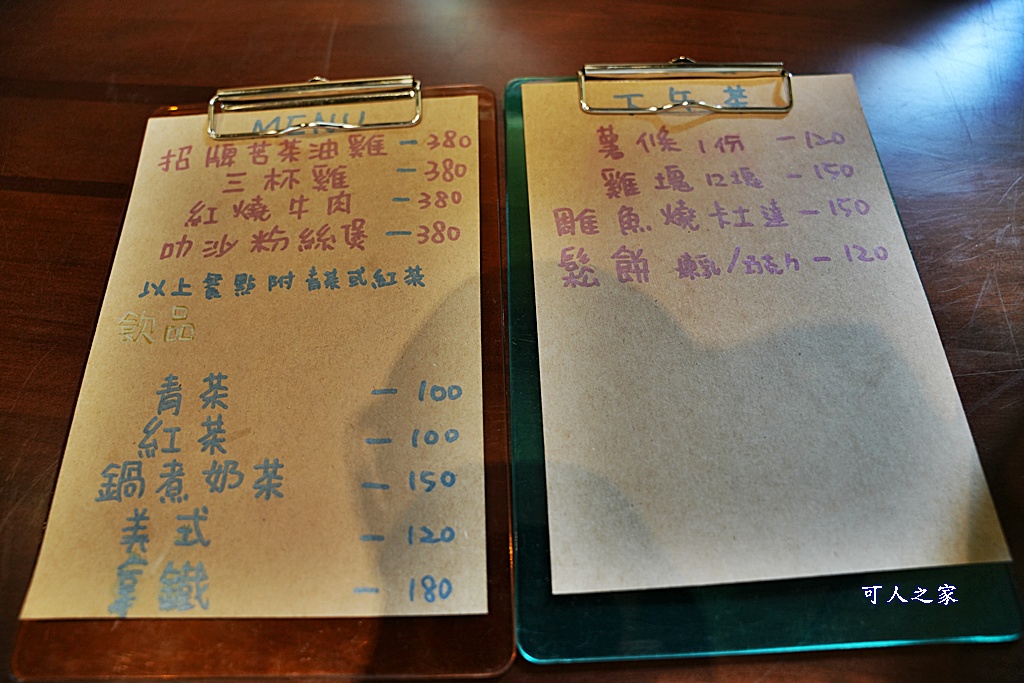 MENU
招牌苦茶油雞 - 380
三杯雞 - 380
紅燒牛肉 - 380
叻沙粉絲煲 - 380
以上餐點附青茶或紅茶
飲品
青茶 - 100
紅茶 - 100
鍋煮奶茶 - 150
美式 - 120
拿鐵 - 180
下午茶
薯條1份 - 120
雞塊12塊 - 150
鬆餅 煉乳/巧克力 - 120
可人之家